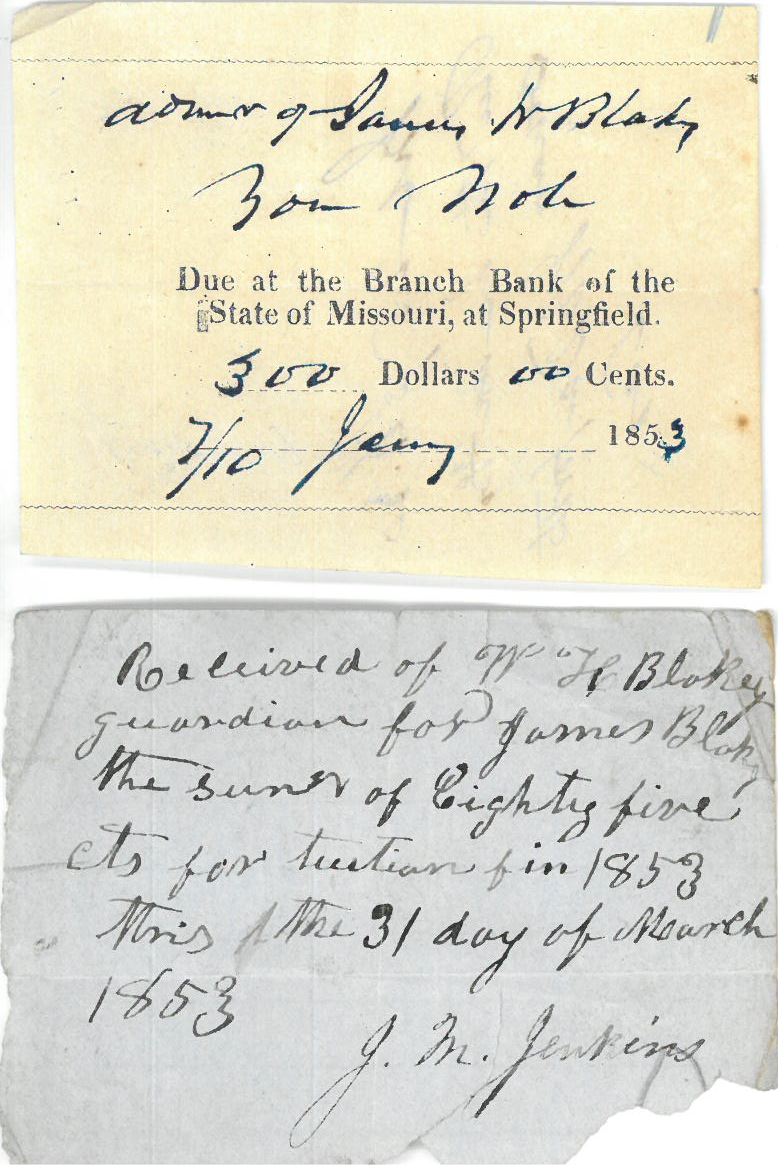 admr of James W Blakey
Your Note
Due at the Branch Bank of the
State of Missouri, at Springfield.
300 Dollars 00 Cents.
7/10 Jany 1853
Received of Wm H Blakey
guardian for James Blakey
the sum of Eighty five
cts for tuetian in 1853
this the 31 day of March
1853
J. M. Jenkins